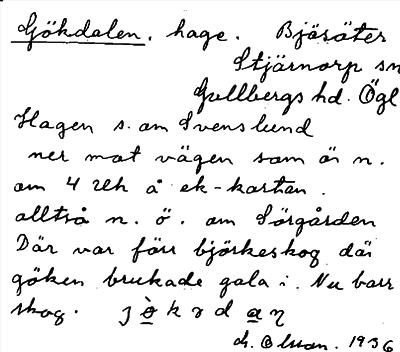 Gökdalen, hage. Bjäsäter
Stjärnorp sn
Gullbergs hd. Ögl
Hagen s. om Svenslund
ner mot vägen som är n.
om 4 Uh å ek-kartan.
alltså n. ö. om Sörgården
Där var förr björkeskog där
göken brukade gala i. Nu barr
skog. j ò̲ k ɤ d a̲ ŋ
G. Olsson. 1936